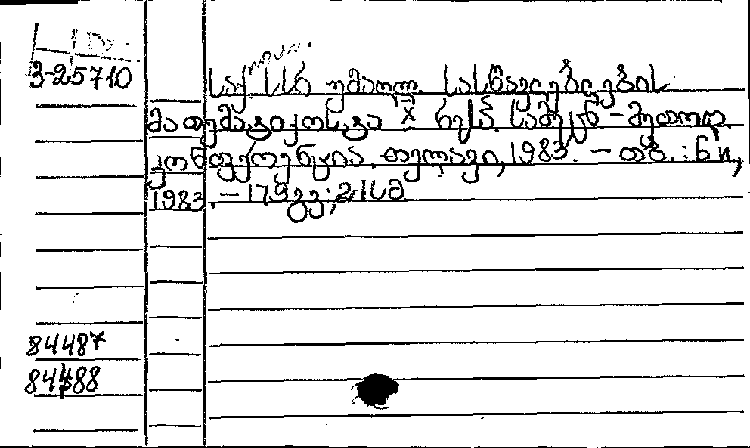 3-25710
საქ სსრ უმაღლ. სასწავლებლების
მათემატიკოსთა X რესპ. სამეცნ-მეთოდ.
კონფერენცია. თელავი, 1983. – თბ. : ნ
1983. – 179 გვ; 21სმ
84487
84488